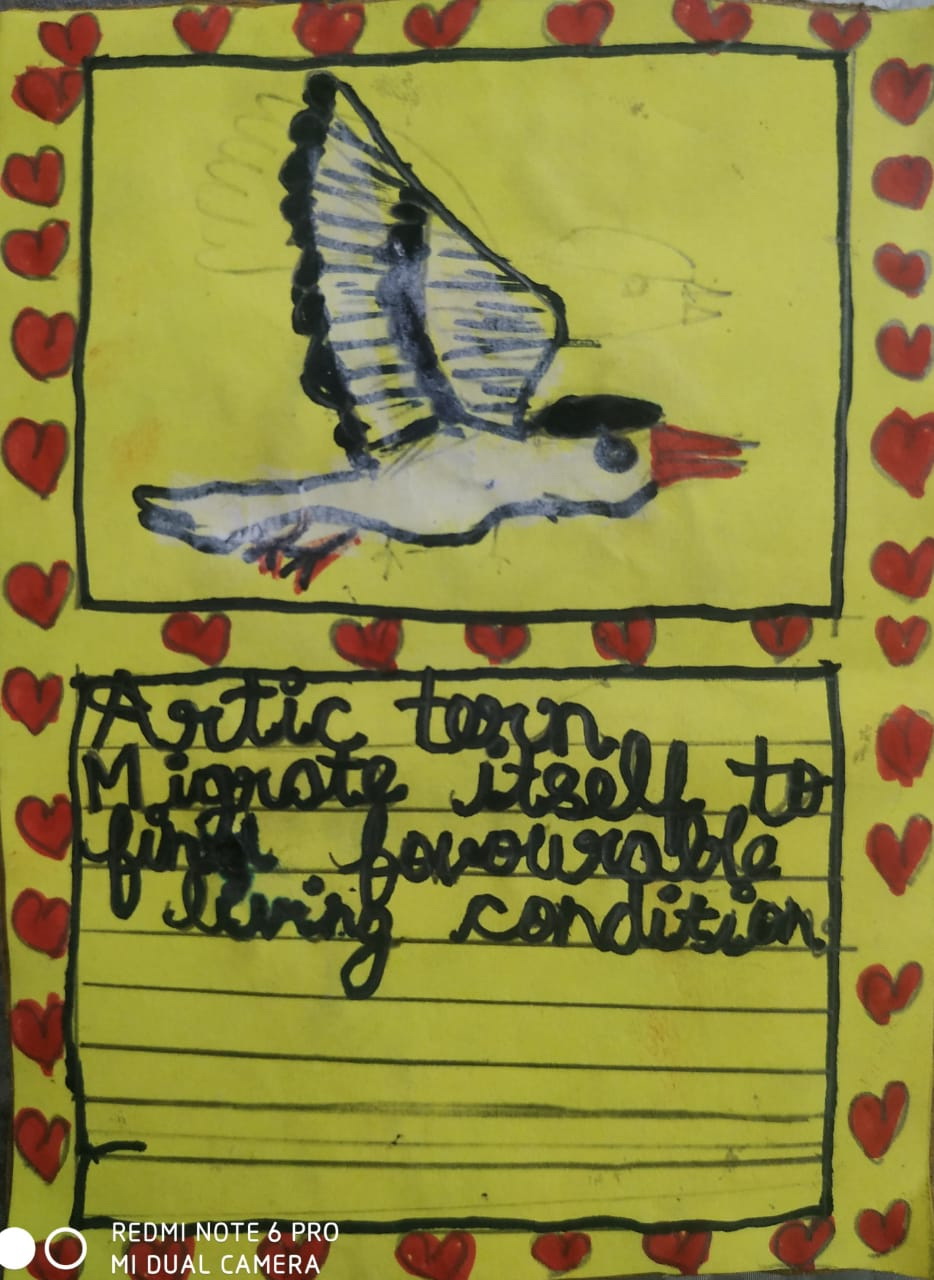 Artic tern
Migrate itself to
find favourable
living condition
REDMI NOTE 6 PRO
MI DUAL CAMERA